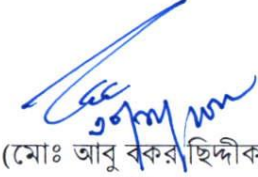 (মোঃ আবু বকর ছিদ্দীক